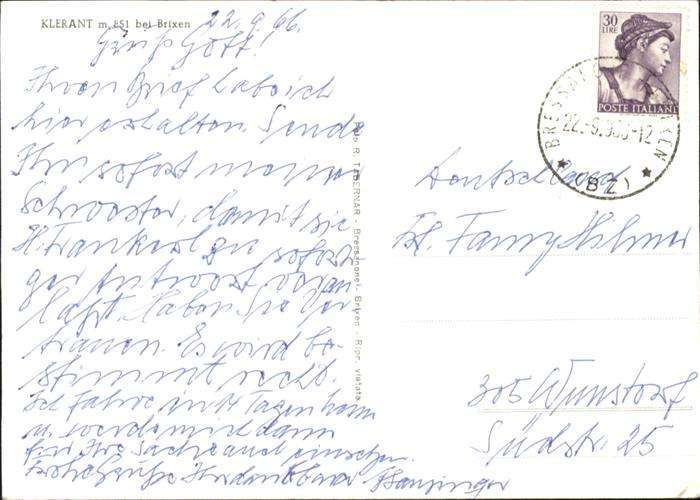 KLERANT m. 851 bei Brixen
22.9.66.
Grüß Gott!
Ihren Brief habe ich
hier erhalten. Sende
Ihn sofort meiner
Schwester, damit sie
H. Frankerl zu sofort
ger Antwort veran
laßt. Haben Sie Ver
trauen. Es wird be-
stimmt recht.
Ich fahre in 14 Tagen heim
u. werde mich dann
für Ihre Sache einsetzen.
Herzl. Grüße Ihr dankbarer
Foto R. TABERNAR - Bressanone - Brixen - Ripr. vietata
30
LIRE
POSTE ITALIANE
BRESSANONE BRIXEN
22.-9.966-12
(BZ)
Deutschland
Frl. Fanny Hilmer
305 Wunstorf
Südstr. 25